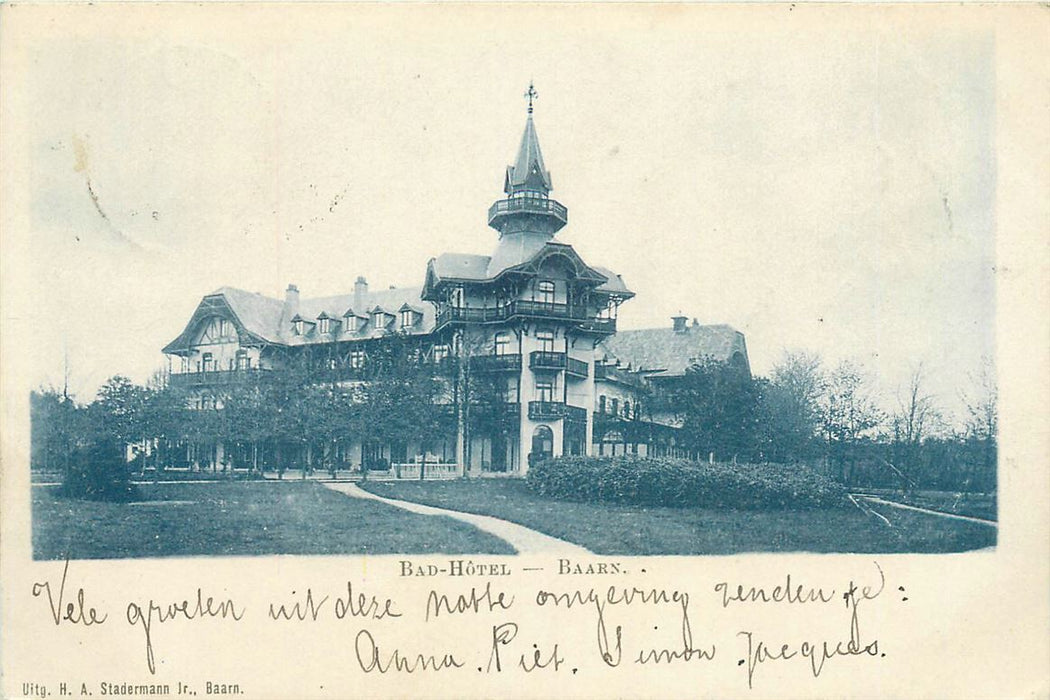 BAD-HÔTEL — BAARN.
Vele groeten uit deze natte omgeving zenden je:
Anna. Piet. Simon Jacques.
Uitg. H. A. Stadermann Jr., Baarn.